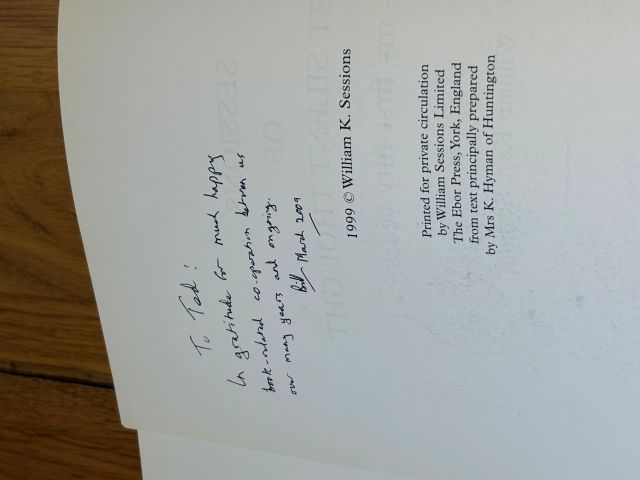 To Ted:
In gratitude for much happy
book-related co-operation between us
over many years and ongoing.
Bill March 2009
1999 © William K. Sessions
Printed for private circulation
by William Sessions Limited
The Ebor Press, York, England
from text principally prepared
by Mrs K. Hyman of Huntington